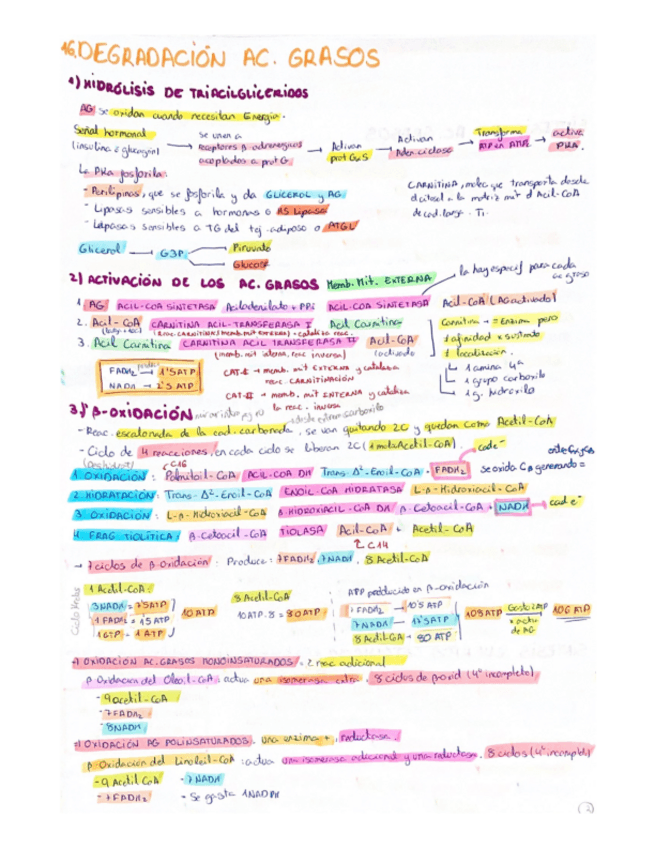 16. DEGRADACIÓN AC. GRASOS
1) HIDRÓLISIS DE TRIACILGLICERIDOS
AG se oxidan cuando necesitan Energía.
Señal hormonal (insulina o glucagón) → se unen a receptores β adrenergicos acoplados a prot G. → Activan prot Gαs → Activan Adenil ciclasa → Transforma ATP en AMPc → activa PKA.
La PKA fosforila:
- Perilipinas, que se fosforila y da GLICEROL y AG
- Lipasas sensibles a hormonas o HS Lipasa
- Lipasas sensibles a TG del tej. adiposo o ATGL
CARNITINA, molec que transporta desde el citosol a la matriz mit el Acil-CoA de cad. larga
Glicerol → G3P → Piruvato
Glucosa
2) ACTIVACIÓN DE LOS AC. GRASOS Memb. Mit. EXTERNA
la hay especif para cada ac graso
1. AG ACIL-COA SINTETASA Aciladenilato + PPi ACIL-COA SINTETASA Acil-CoA (AG activado)
2. Acil-CoA CARNITINA ACIL-TRANSFERASA I Acil Carnitina
3. Acil Carnitina CARNITINA ACIL TRANSFERASA II Acil-CoA
(memb. mit interna, reac inversa) (activado)
≠ afinidad x sustrato
≠ localización.
1 amina 4ª
1 grupo carboxilo
1 g. hidroxilo
FADH₂ → 1'5 ATP
NADH → 2'5 ATP
CAT-I → memb. mit EXTERNA y cataliza reac CARNITINACIÓN
CAT-II → memb. mit INTERNA y cataliza la reac. inversa
3) β-OXIDACIÓN
- Reac. escalonada de la cad. carbonada, se van quitando 2C y quedan como Acetil-CoA
- Ciclo de 4 reacciones, en cada ciclo se liberan 2C (1 mol Acetil-CoA).
C16
cad e⁻
1. OXIDACIÓN: Palmitoil-CoA ACIL-COA DH Trans-Δ²-Enoil-CoA + FADH₂ Se oxida Cβ generando =
2. HIDRATACIÓN: Trans-Δ²-Enoil-CoA ENOIL-COA HIDRATASA L-β-Hidroxiacil-CoA
3. OXIDACIÓN: L-β-Hidroxiacil-CoA β-HIDROXIACIL-COA DH β-Cetoacil-CoA + NADH → cad e⁻
4. FRAG. TIOLÍTICA: β-Cetoacil-CoA TIOLASA Acil-CoA + Acetil-CoA
C14
→ 7 ciclos de β-Oxidación: Produce: 7 FADH₂, 7 NADH, 8 Acetil-CoA
Ciclo Krebs
1 Acetil-CoA:
3 NADH = 7'5 ATP
1 FADH₂ = 1'5 ATP
1 GTP = 1 ATP
10 ATP
8 Acetil-CoA
10 ATP · 8 = 80 ATP
ATP producido en β-oxidación
7 FADH₂ → 10'5 ATP
7 NADH → 17'5 ATP
8 Acetil-CoA → 80 ATP
108 ATP Gasto 2 ATP x activ de AG 106 ATP
→) OXIDACIÓN AC. GRASOS MONOINSATURADOS = 2 reac adicional
β-Oxidacion del Oleoil-CoA: actua una isomerasa extra. 8 ciclos de β-oxid (4º incompleto)
- 9 acetil-CoA
- 7 FADH₂
- 8 NADH
→) OXIDACIÓN AG POLINSATURADOS. una enzima +, reductasa.
β-Oxidación del Linoleil-CoA: actua una isomerasa adicional y una reductasa. 8 ciclos (4º incompleto)
- 9 Acetil CoA - 7 NADH
- 7 FADH₂ - Se gasta 1 NADPH